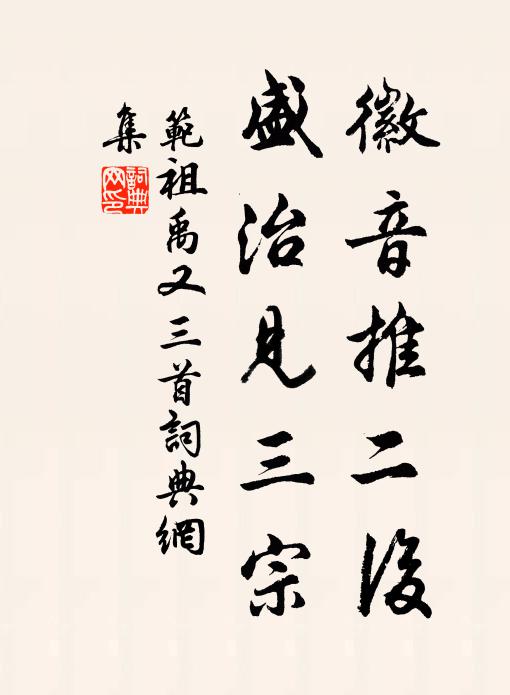 徽音推二後
盛治見三宗
範祖禹又三首詞典網
集
詞典網印